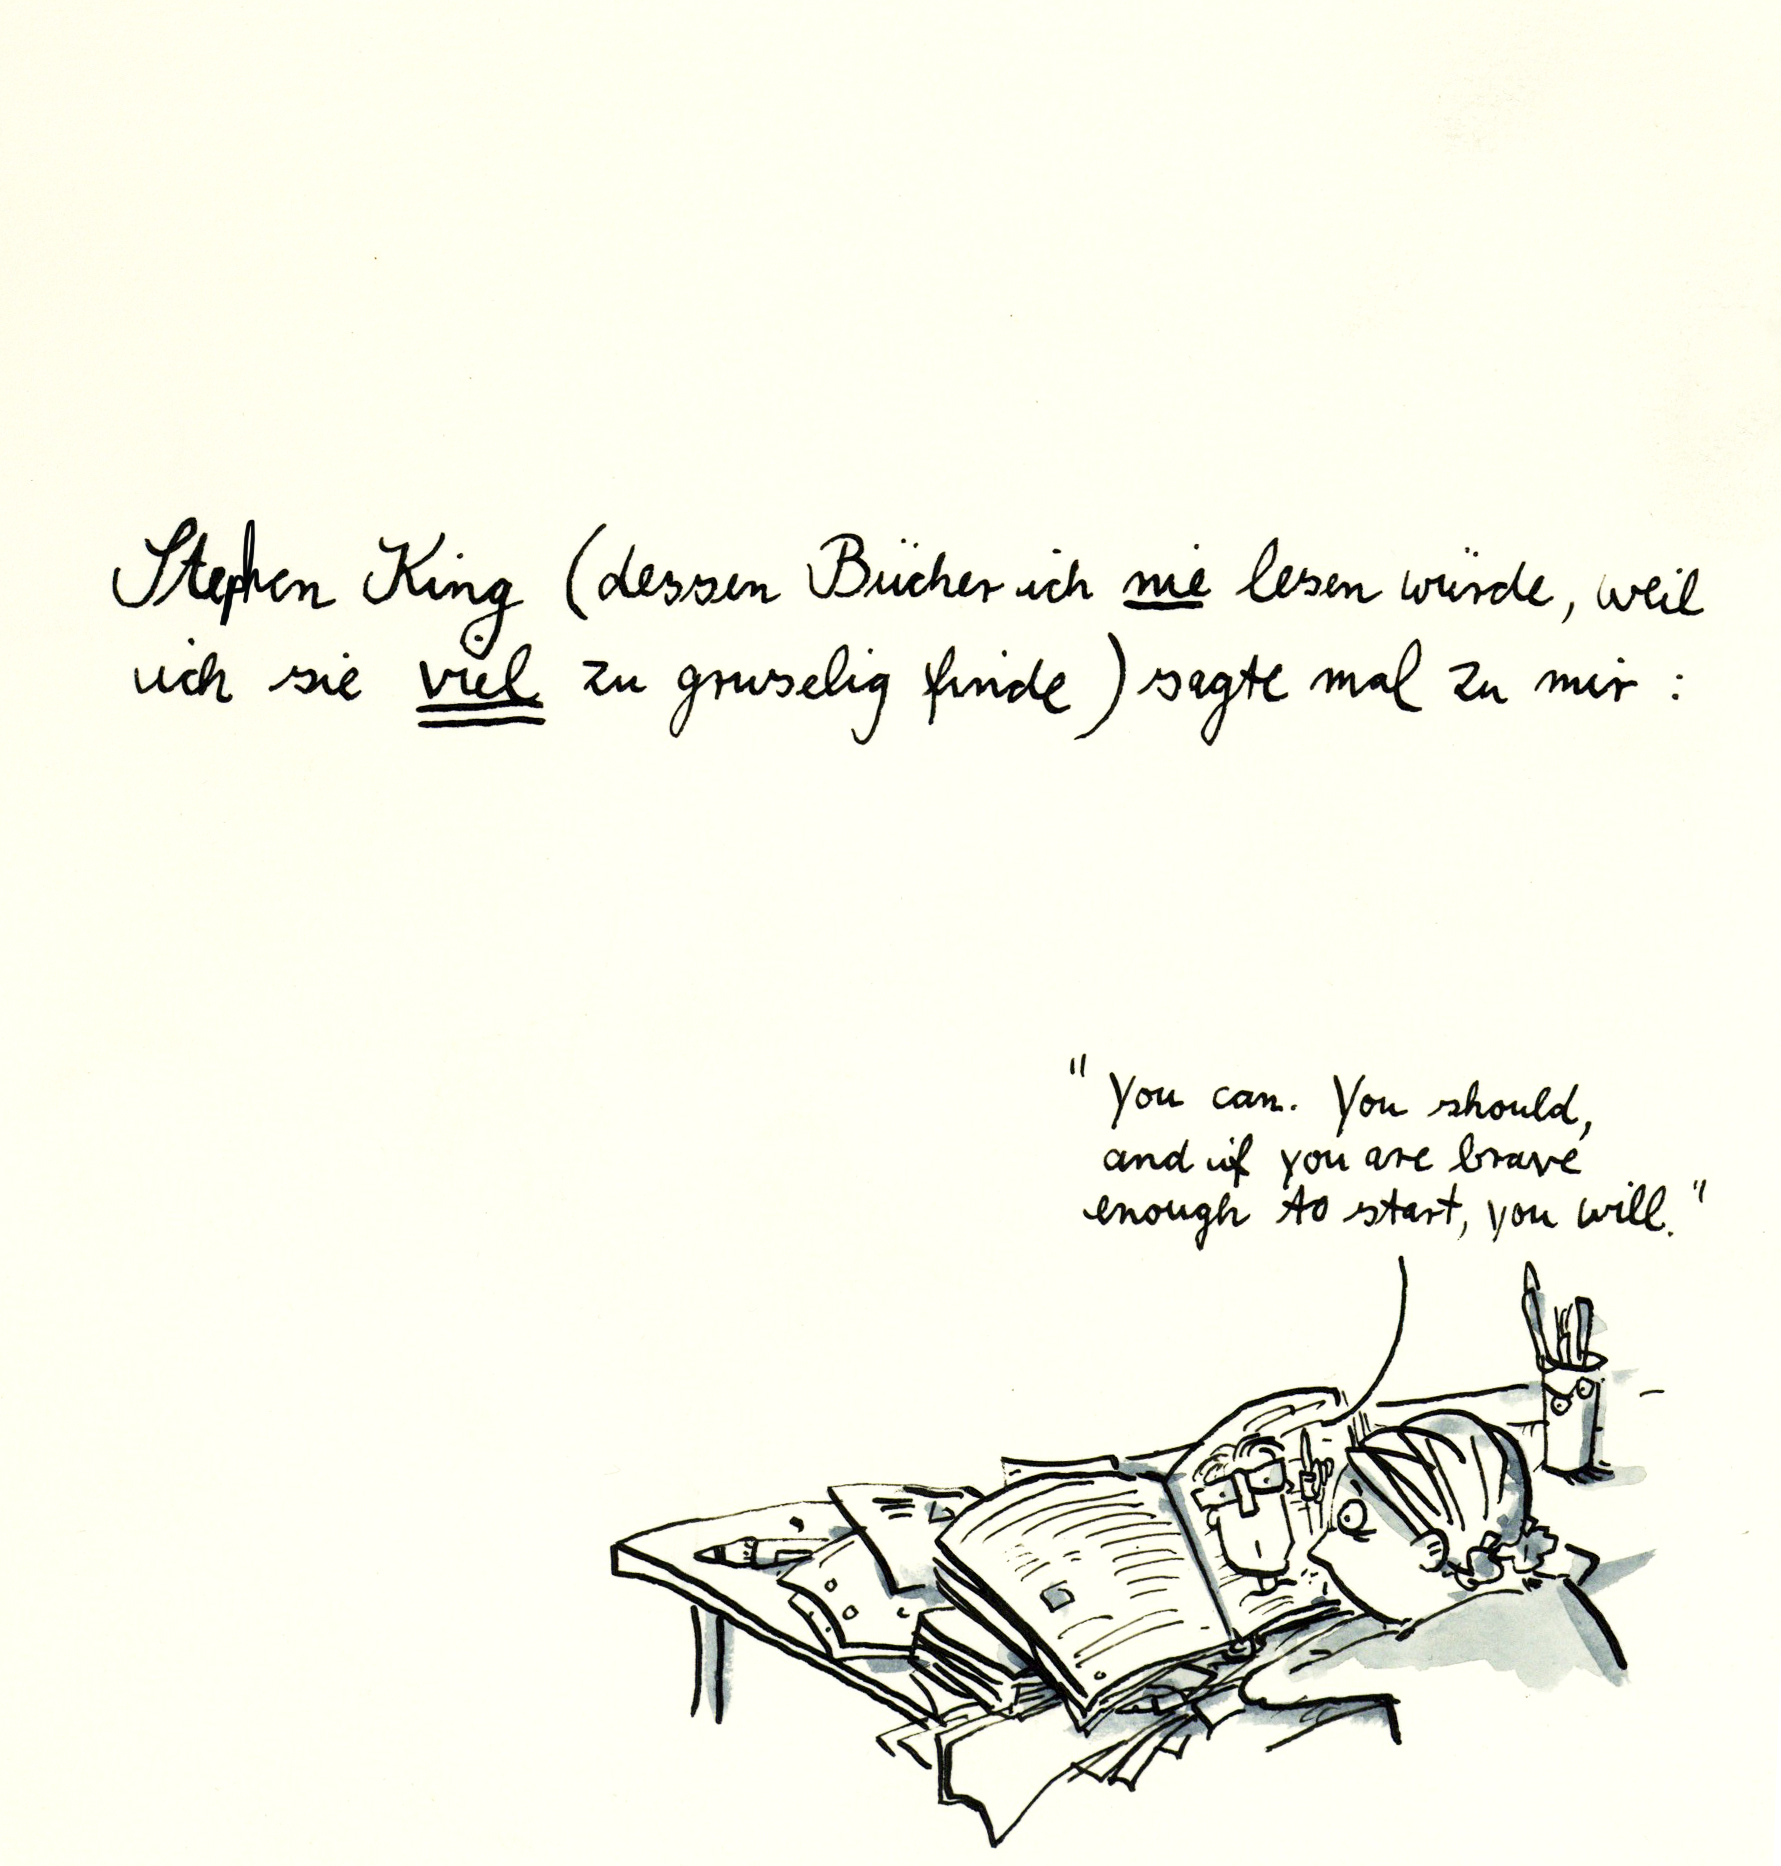 Stephen King (dessen Bücher ich nie lesen würde, weil
ich sie viel zu gruselig finde) sagte mal zu mir:
"You can. You should,
and if you are brave
enough to start, you will."